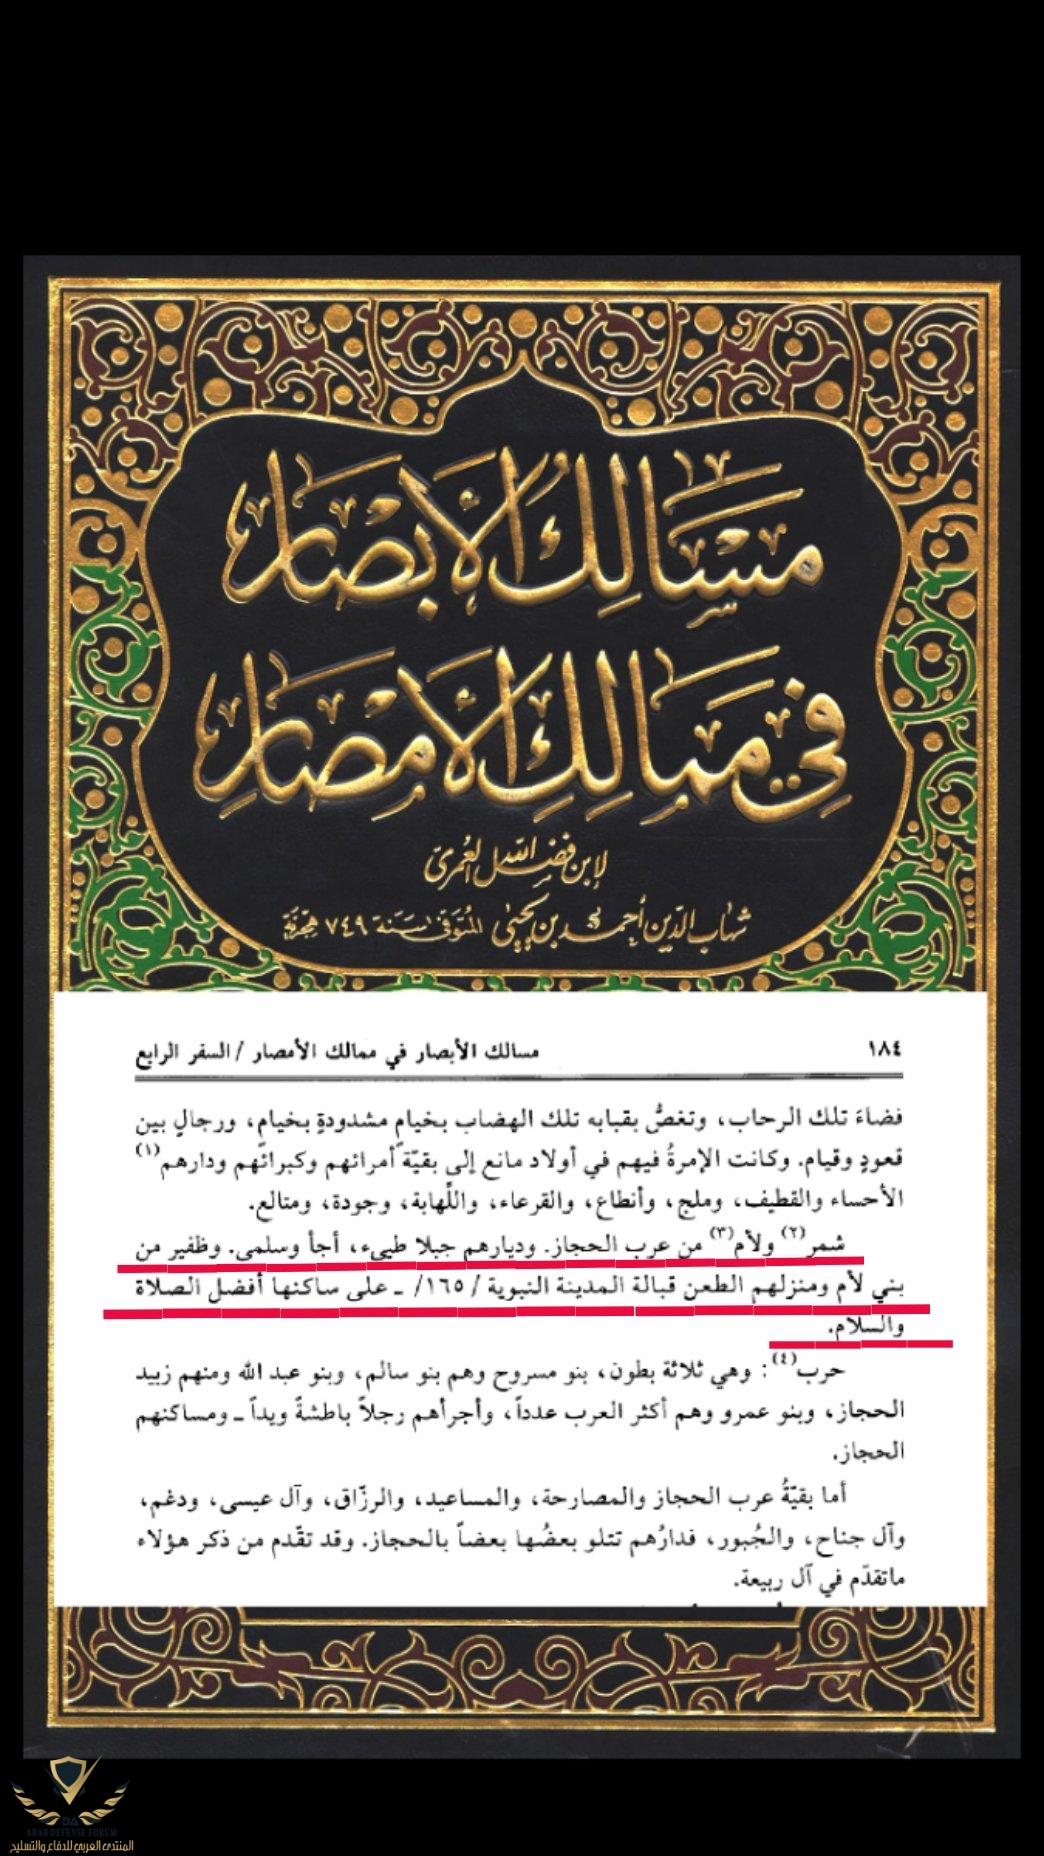 مسالك الأبصار
في ممالك الأمصار
لابن فضل الله العمري
شهاب الدين أحمد بن يحيى المتوفى سنة ٧٤٩ هجرية
١٨٤ مسالك الأبصار في ممالك الأمصار / السفر الرابع
فضاءَ تلك الرحاب، وتغصُّ بقبابه تلك الهضاب بخيامٍ مشدودةٍ بخيام، ورجالٍ بين
قعودٍ وقيام. وكانت الإمرةُ فيهم في أولاد مانع إلى بقيّة أمرائهم وكبرائهم ودارهم(١)
الأحساء والقطيف، وملج، وأنطاع، والقرعاء، واللّهابة، وجودة، ومتالع.
شمر(٢) ولأم(٣) من عرب الحجاز. وديارهم جبلا طيىء، أجأ وسلمى. وظفير من
بني لأم ومنزلهم الطعن قبالة المدينة النبوية /١٦٥/ ـ على ساكنها أفضل الصلاة
والسلام.
حرب(٤): وهي ثلاثة بطون، بنو مسروح وهم بنو سالم، وبنو عبد الله ومنهم زبيد
الحجاز، وبنو عمرو وهم أكثر العرب عدداً، وأجرأهم رجلاً باطشةً ويداً ـ ومساكنهم
الحجاز.
أما بقيّةُ عرب الحجاز والمصارحة، والمساعيد، والرزّاق، وآل عيسى، ودغم،
وآل جناح، والجُبور، فدارُهم تتلو بعضُها بعضاً بالحجاز. وقد تقّدم من ذكر هؤلاء
ماتقدّم في آل ربيعة.
ARAB DEFENSE FORUM
المنتدى العربي للدفاع والتسليح